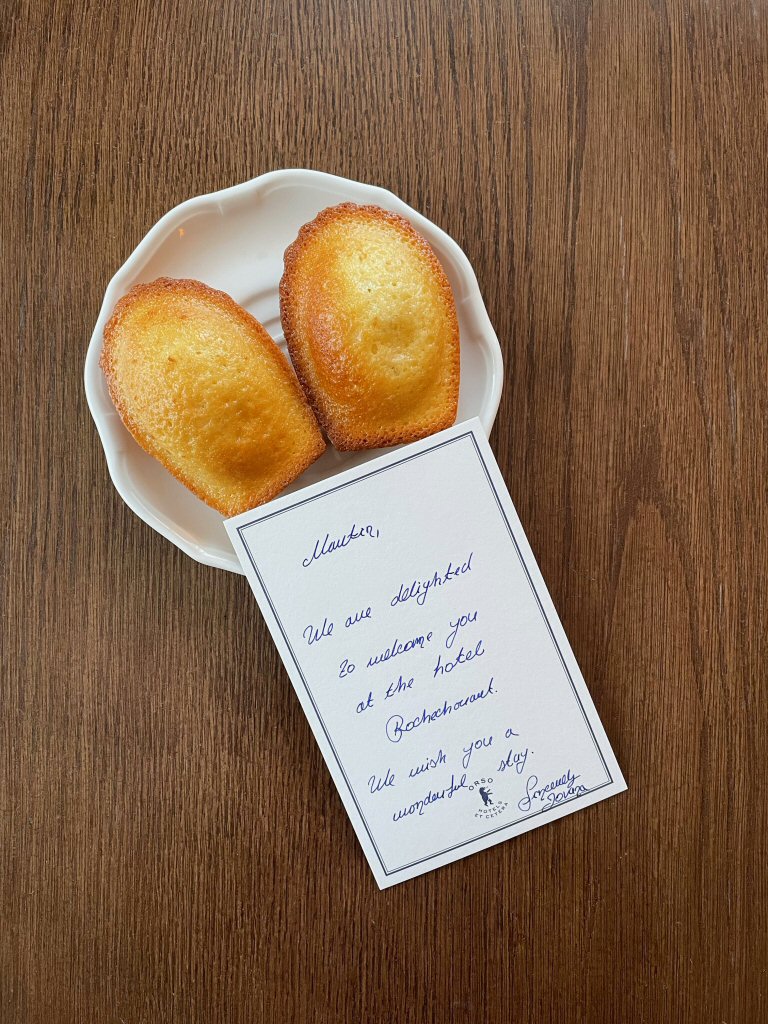 We are delighted
to welcome you
at the hotel
Rochechouart.
We wish you a
wonderful stay.
ORSO
HOTELS
ET CETERA
Sincerely